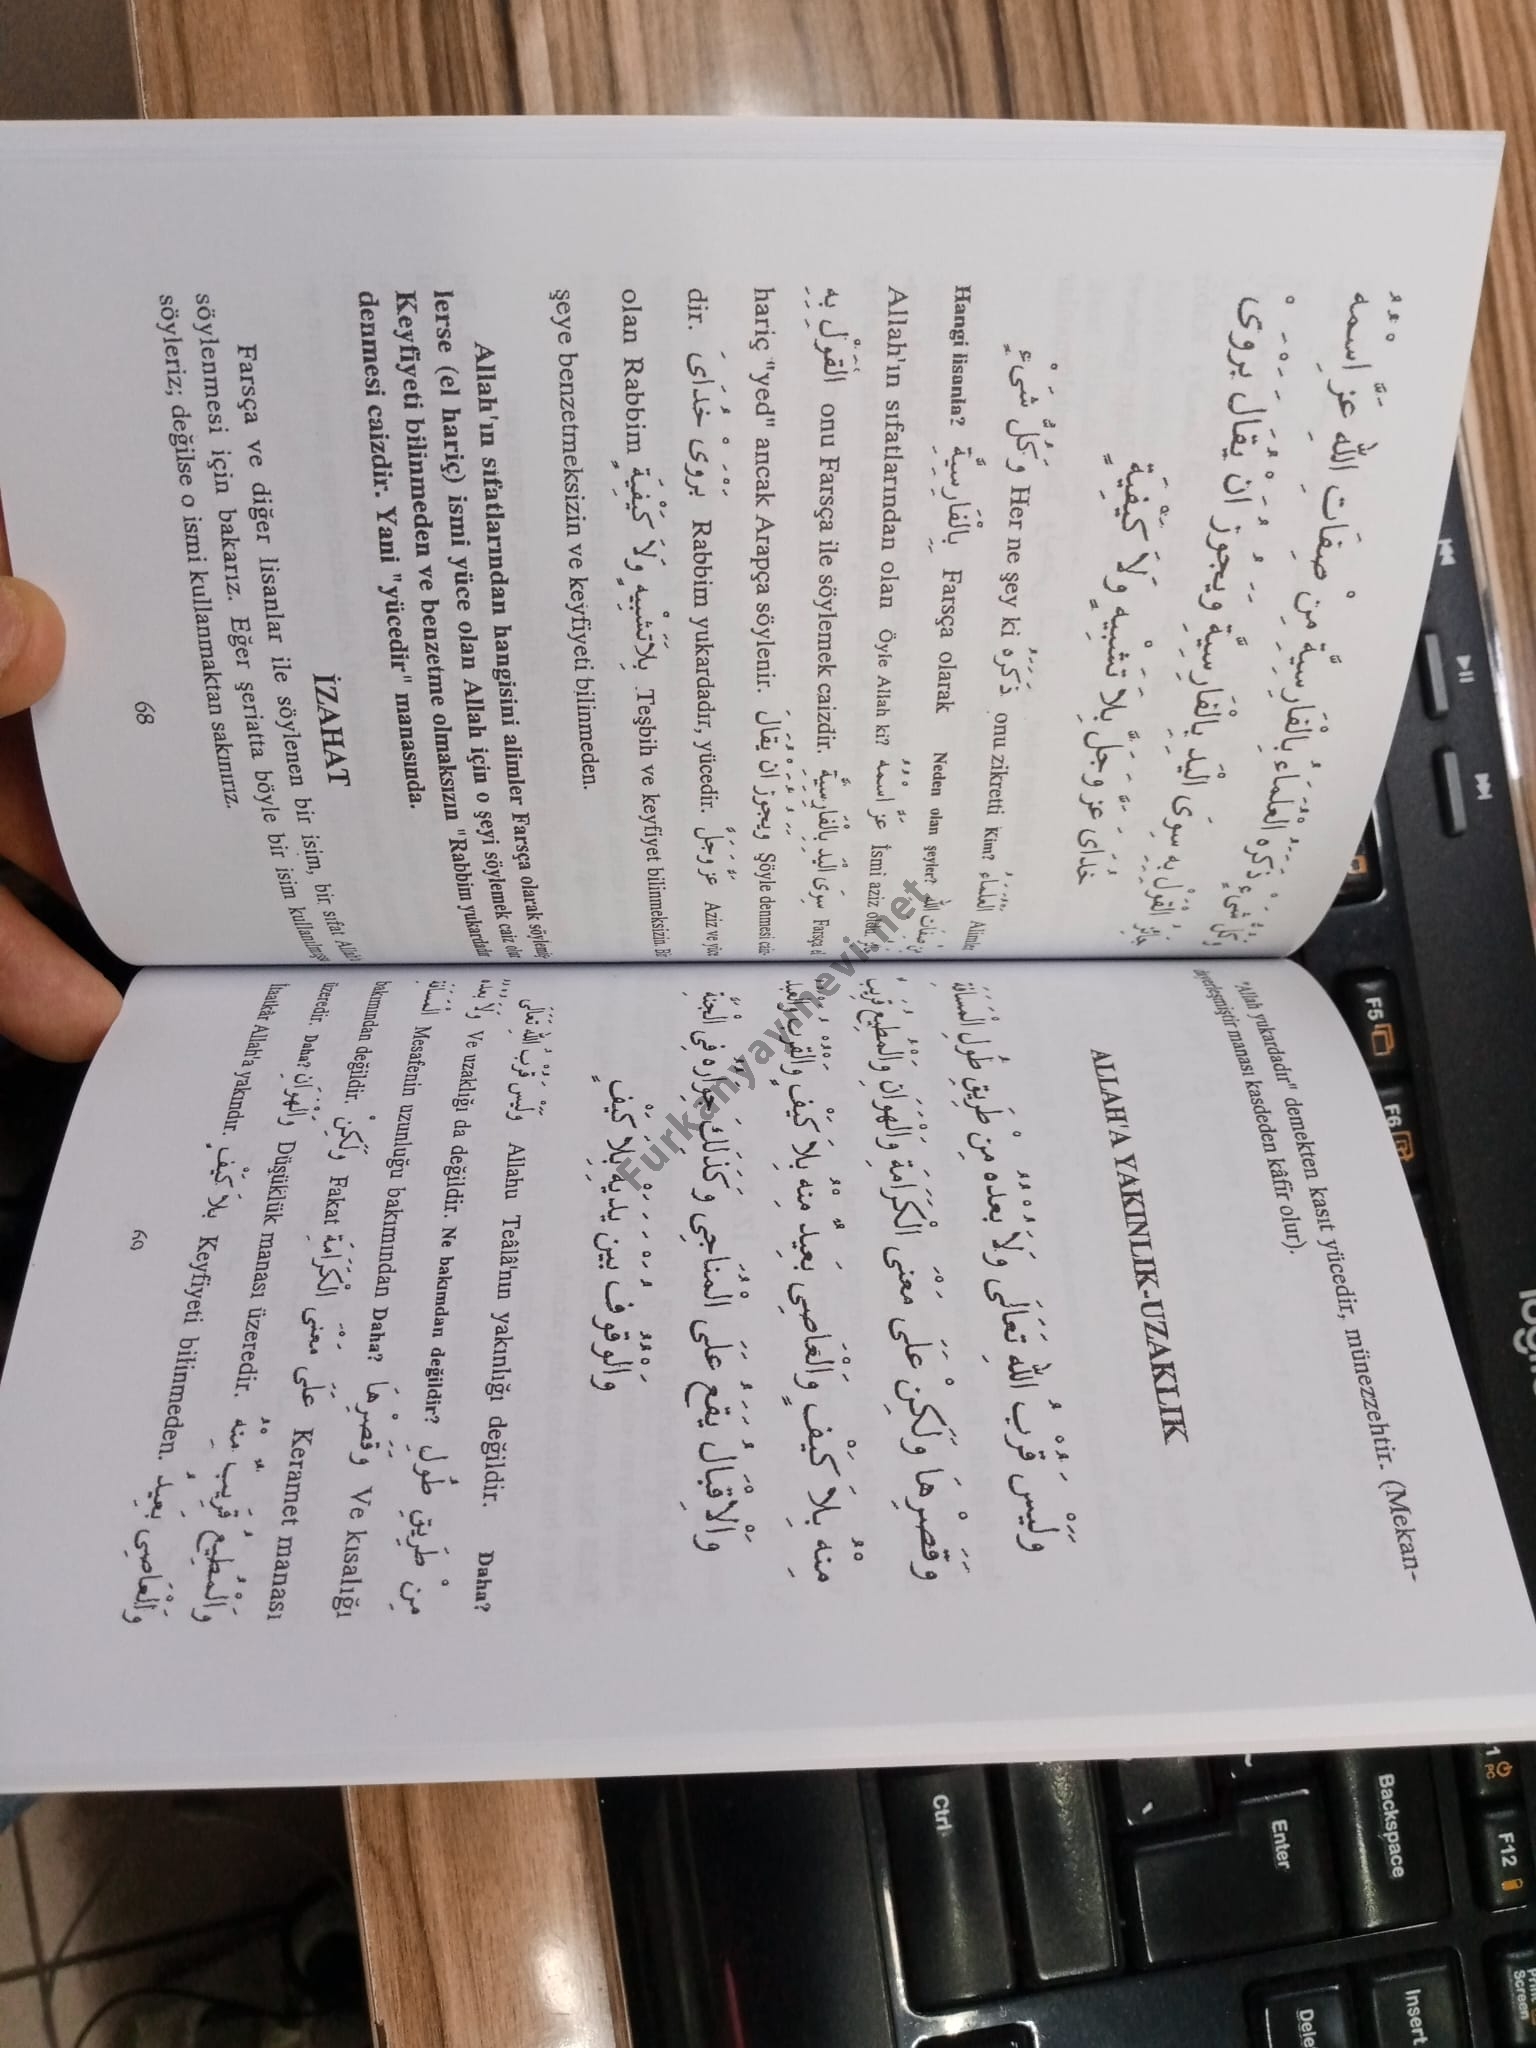 وَكُلُّ شَىْءٍ ذَكَرَهُ الْعُلَمَاءُ بِالْفَارِسِيَّةِ مِنْ صِفَاتِ اللهِ عَزَّ اسْمُهُ
جَائِزٌ الْقَوْلُ بِهِ سِوَى الْيَدِ بِالْفَارِسِيَّةِ وَيَجُوزُ اَنْ يُقَالَ بَرْوَىْ
خُدَاىَ عَزَّ وَجَلَّ بِلَا تَشْبِيهٍ وَلَا كَيْفِيَّةٍ
وَكُلُّ شَىْءٍ Her ne şey ki ذَكَرَهُ onu zikretti Kim? الْعُلَمَاءُ Alimler
Hangi lisanla? بِالْفَارِسِيَّةِ Farsça olarak Neden olan şeyler? مِنْ صِفَاتِ اللهِ
Allah'ın sıfatlarından olan Öyle Allah ki? عَزَّ اسْمُهُ İsmi aziz olan.
الْقَوْلُ بِهِ onu Farsça ile söylemek caizdir. سِوَى الْيَدِ بِالْفَارِسِيَّةِ Farsça el
hariç "yed" ancak Arapça söylenir. وَيَجُوزُ اَنْ يُقَالَ Şöyle denmesi caiz-
dir. بَرْوَىْ خُدَاىَ Rabbim yukardadır, yücedir. عَزَّ وَجَلَّ Aziz ve yüce
olan Rabbim بِلَاتَشْبِيهٍ وَلَا كَيْفِيَّةٍ Teşbih ve keyfiyet bilinmeksizin. Bir
şeye benzetmeksizin ve keyfiyeti bilinmeden.
Allah'ın sıfatlarından hangisini alimler Farsça olarak söylemiş-
lerse (el hariç) ismi yüce olan Allah için o şeyi söylemek caiz olur.
Keyfiyeti bilinmeden ve benzetme olmaksızın "Rabbim yukardadır"
denmesi caizdir. Yani "yücedir" manasında.
İZAHAT
Farsça ve diğer lisanlar ile söylenen bir isim, bir sıfat Allah'a
söylenmesi için bakarız. Eğer şeriatta böyle bir isim kullanılmışsa
söyleriz; değilse o ismi kullanmaktan sakınırız.
68
"Allah yukardadır" demekten kasıt yücedir, münezzehtir. (Mekan-
da yerleşmiştir manası kasdeden kâfir olur).
ALLAH'A YAKINLIK-UZAKLIK
وَلَيْسَ قُرْبُ اللهِ تَعَالَى وَلَا بُعْدُهُ مِنْ طَرِيقِ طُولِ الْمَسَافَةِ
وَقِصَرِهَا وَلَكِنْ عَلَى مَعْنَى الْكَرَامَةِ وَالْهَوَانِ وَالْمُطِيعُ قَرِيبٌ
مِنْهُ بِلَا كَيْفٍ وَالْعَاصِى بَعِيدٌ مِنْهُ بِلَا كَيْفٍ وَالْقُرْبُ وَالْبُعْدُ
وَالْاِقْبَالُ يَقَعُ عَلَى الْمُنَاجِى وَكَذَلِكَ جِوَارُهُ فِى الْجَنَّةِ
وَالْوُقُوفُ بَيْنَ يَدَيْهِ بِلَا كَيْفٍ
وَلَيْسَ قُرْبُ اللهِ تَعَالَى Allahu Teâlâ'nın yakınlığı değildir. Daha?
وَلَا بُعْدُهُ Ve uzaklığı da değildir. Ne bakımdan değildir? مِنْ طَرِيقِ طُولِ
الْمَسَافَةِ Mesafenin uzunluğu bakımından Daha? وَقِصَرِهَا Ve kısalığı
bakımından değildir. وَلَكِنْ Fakat عَلَى مَعْنَى الْكَرَامَةِ Keramet manası
üzeredir. Daha? وَالْهَوَانِ Düşüklük manası üzeredir. وَالْمُطِيعُ قَرِيبٌ مِنْهُ
İtaatkâr Allah'a yakındır. بِلَا كَيْفٍ Keyfiyeti bilinmeden. وَالْعَاصِى بَعِيدٌ
69
Furkanyayinevi.net
Backspace
Enter
Ctrl
F5
F6
F12
Insert
Print
Screen